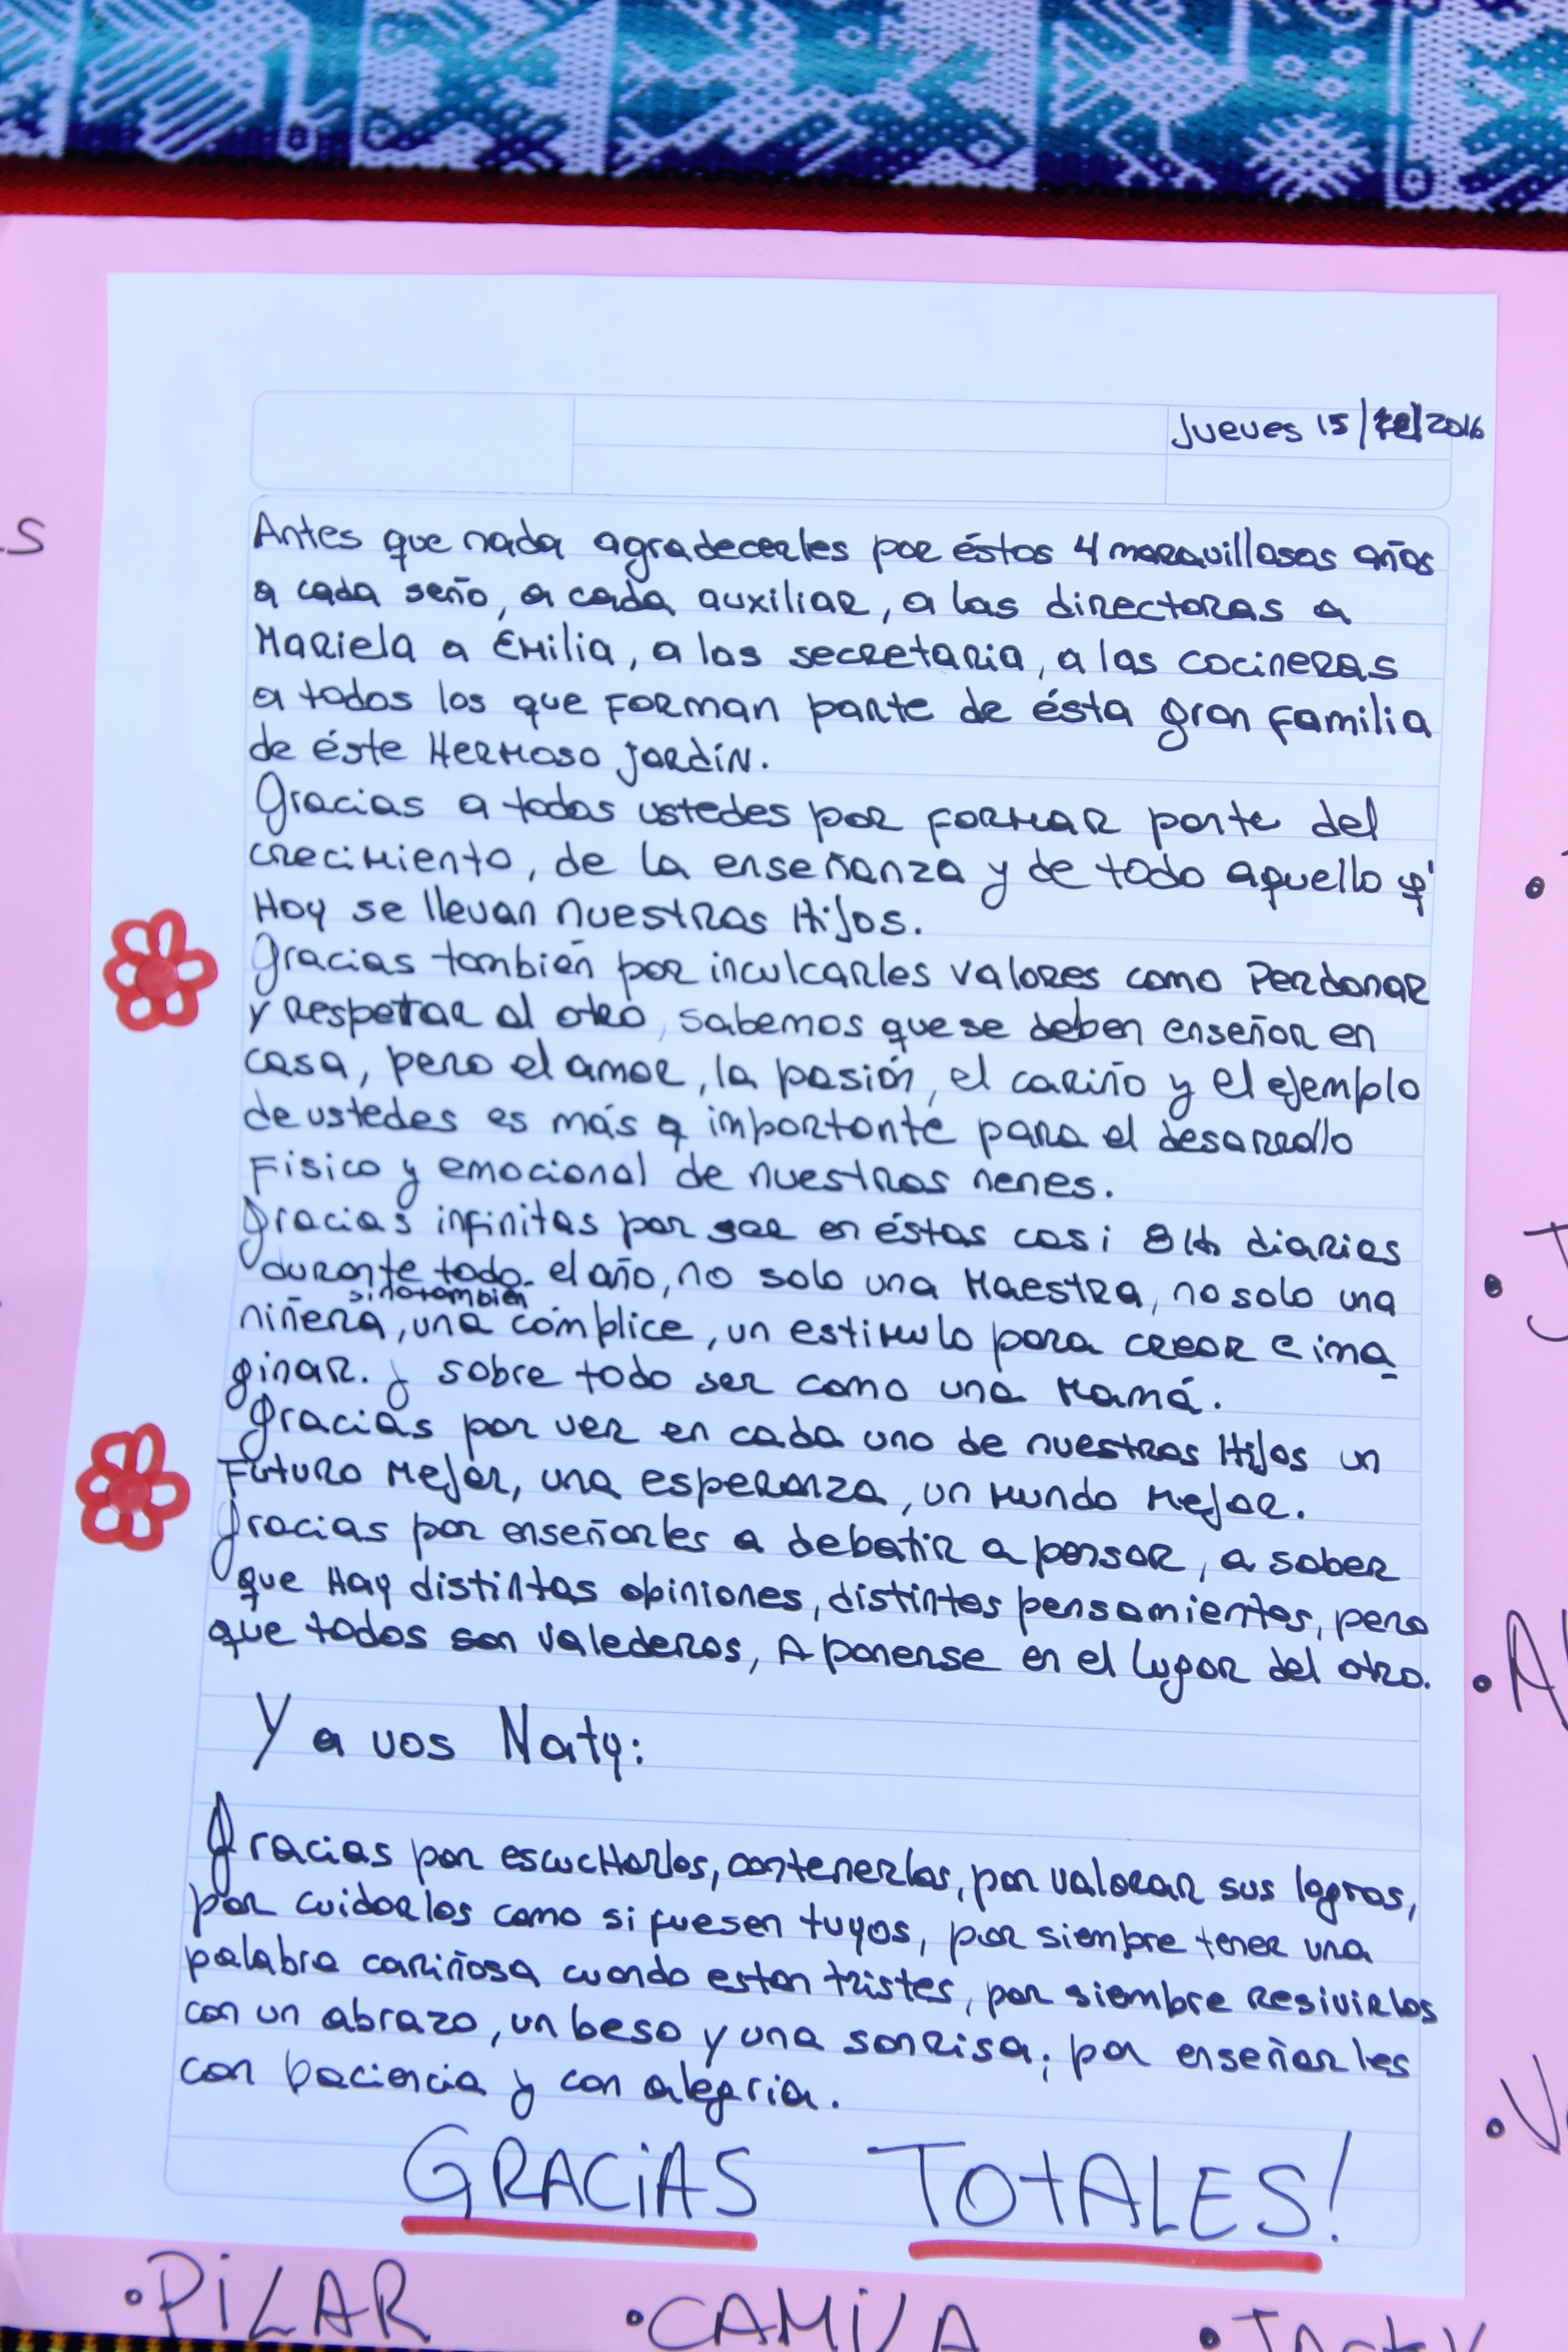 Jueves 15/12/2016
s
Antes que nada agradecerles por éstos 4 maravillosos años
a cada seño, a cada auxiliar, a las directoras a
Mariela a Emilia, a las secretaria, a las cocineras
a todos los que forman parte de ésta gran familia
de éste Hermoso jardín.
Gracias a todos ustedes por formar parte del
crecimiento, de la enseñanza y de todo aquello q'
Hoy se llevan nuestros Hijos.
Gracias también por inculcarles valores como Perdonar
y respetar al otro, sabemos que se deben enseñar en
casa, pero el amor, la pasión, el cariño y el ejemplo
de ustedes es más q importante para el desarrollo
Fisico y emocional de nuestros nenes.
Gracias infinitas por ser en éstas casi 8 Hs diarias
durante todo el año, no solo una Maestra, no solo una
sino también
niñera, una cómplice, un estimulo para crear e ima
ginar. y sobre todo ser como una Mamá.
Gracias por ver en cada uno de nuestros Hijos un
Futuro Mejor, una esperanza, un Mundo Mejor.
Gracias por enseñarles a debatir a pensar, a saber
que Hay distintas opiniones, distintos pensamientos, pero
que todos son valederos, A ponerse en el lugar del otro.
Y a vos Naty:
Gracias por escucHarlos, contenerlos, por valorar sus logros,
por cuidarlos como si fuesen tuyos, por siempre tener una
palabra cariñosa cuando estan tristes, por siembre resivirlos
con un abrazo, un beso y una sonrisa, por enseñarles
con paciencia y con alegria.
GRACiAS TOtALES!
•PiLAR •CAMiLA